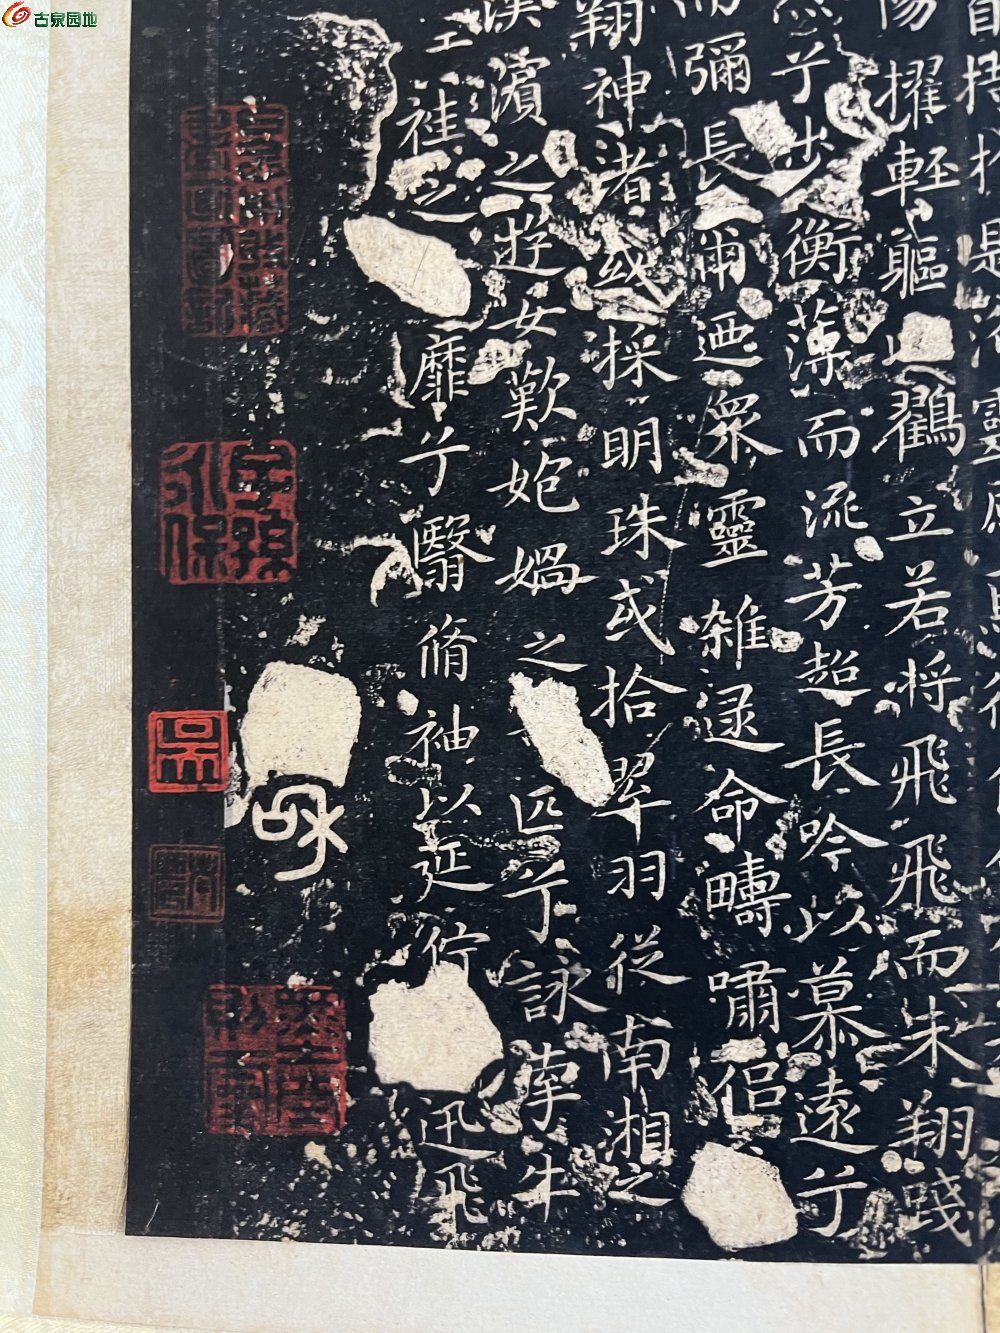 古泉园地
於是洛靈
陽擢輕軀以鶴立若將飛飛而未翔踐
兮步衡薄而流芳超長吟以慕遠兮
而彌長爾迺眾靈雜遝命疇嘯侶
翔神渚或採明珠或拾翠羽從南湘之
漢濱之遊女歎匏媧之匹兮詠牽牛
袿之靡兮翳脩袖以延佇迅飛
子孫永保
吳